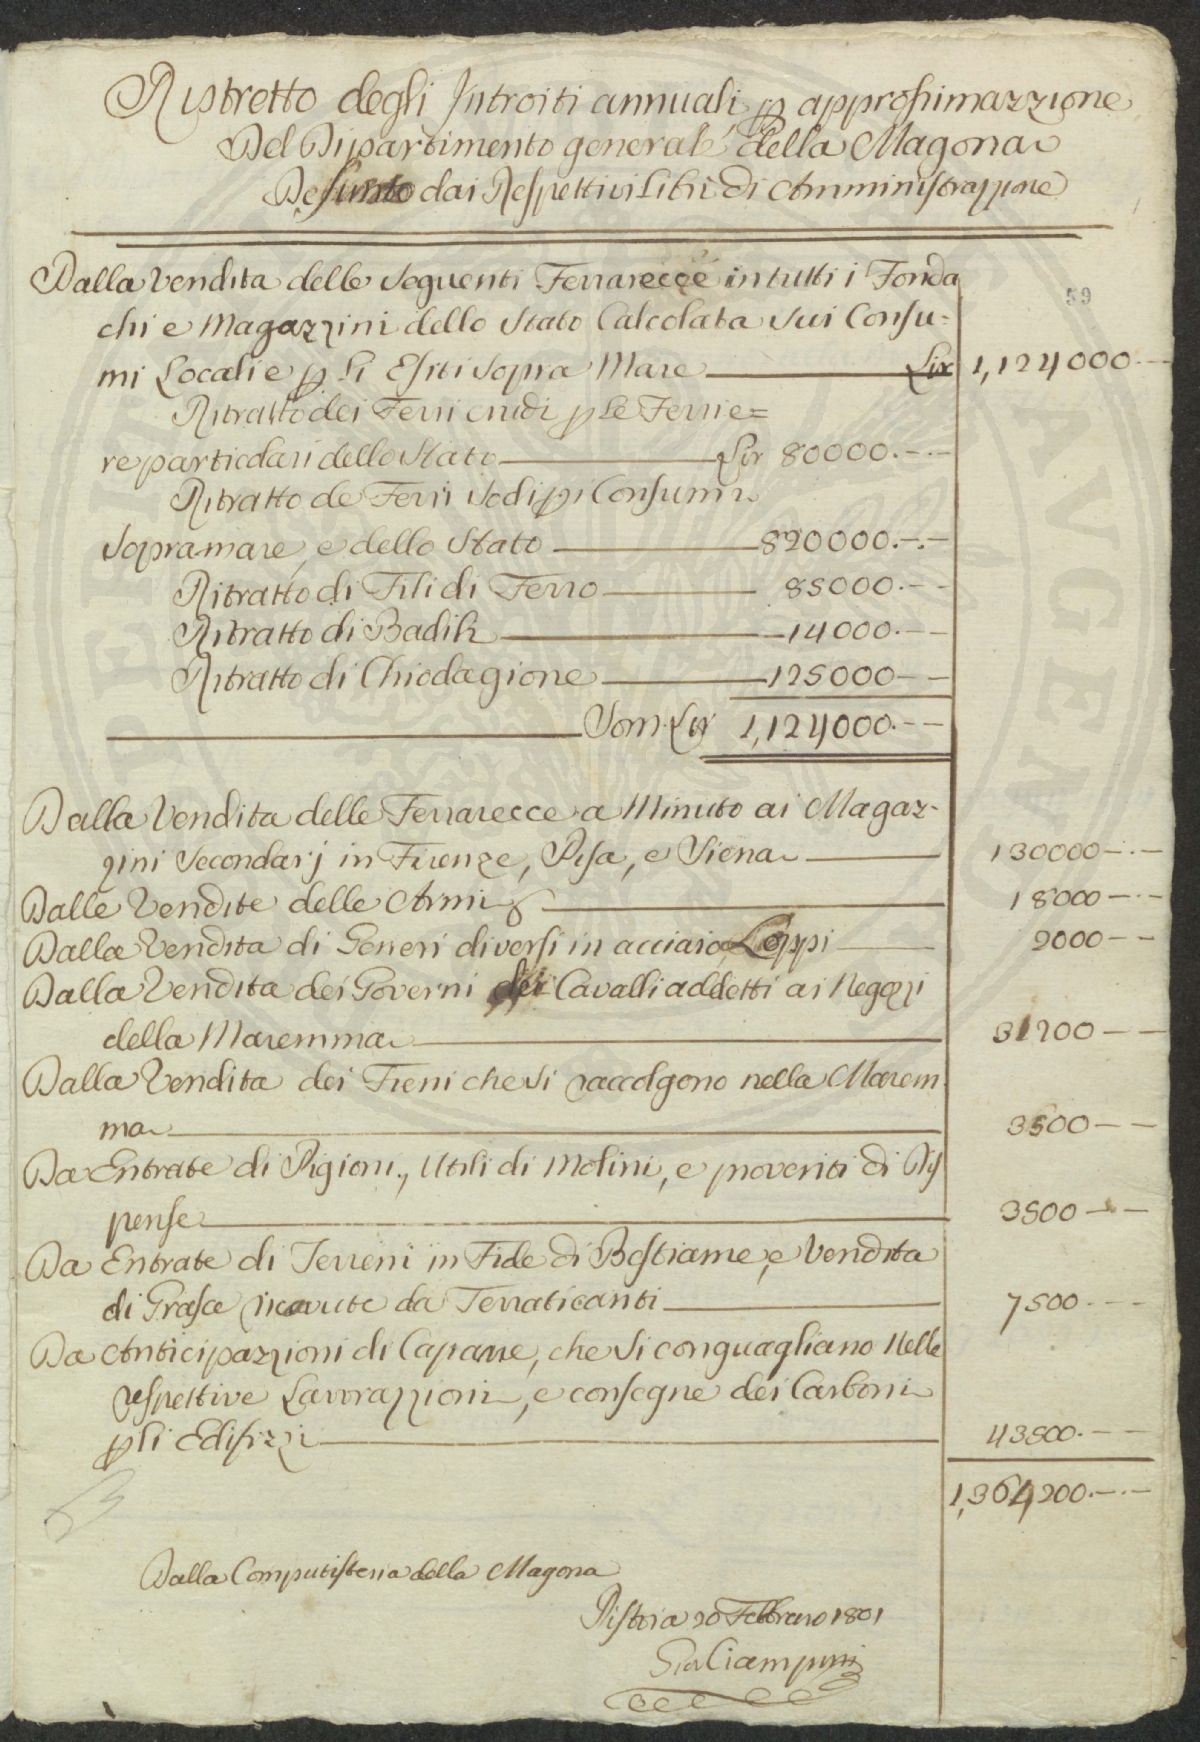 Ristretto degli Introiti annuali p approssimazzione
Del Dipartimento generale della Magona
Desunto dai Respettivi Libri di Amministrazzione
59
Dalla Vendita delle Seguenti Ferrarecce in tutti i Fonda
chi e Magazzini dello Stato Calcolata Sui Consu=
mi Locali e p li Esiti Sopra Mare Lir 1,124000.--
Ritratto dei Ferri crudi p le Ferrie=
re particolari dello Stato Lir 80000.--
Ritratto de Ferri Sodi p i Consumi
Sopramare, e dello Stato 820000.--
Ritratto di Fili di Ferro 85000.--
Ritratto di Badili 14000.--
Ritratto di Chiodagione 125000--
Som. Lir 1,124000.--
Dalla Vendita delle Ferrarecce a Minuto ai Magaz-
zini Secondarj in Firenze, Pisa, e Siena 130000--
Dalle Vendite delle Armi 18000--
Dalla Vendita di Generi diversi in acciaio, Loppi 2000--
Dalla Vendita dei Governi dei Cavalli addetti ai Negozi
della Maremma 31200--
Dalla Vendita dei Fieni che Si raccolgono nella Marem
ma 3500--
Da Entrate di Pigioni, Utili di Molini, e proventi di Dis
pense 3500--
Da Entrate di Terreni in Fide di Bestiame, e Vendita
di Grasce ricevute da Terraticanti 7500.--
Da Anticipazzioni di Caparre, che Si conguagliano Nelle
respettive Lavorazzioni, e consegne dei Carboni
p li Edifizzi 43500.--
1,364,200.--
Dalla Computisteria della Magona
Pistoia 20 Febbraio 1801
Ciampini